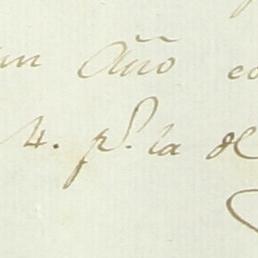 un Año co
4. pr. la de